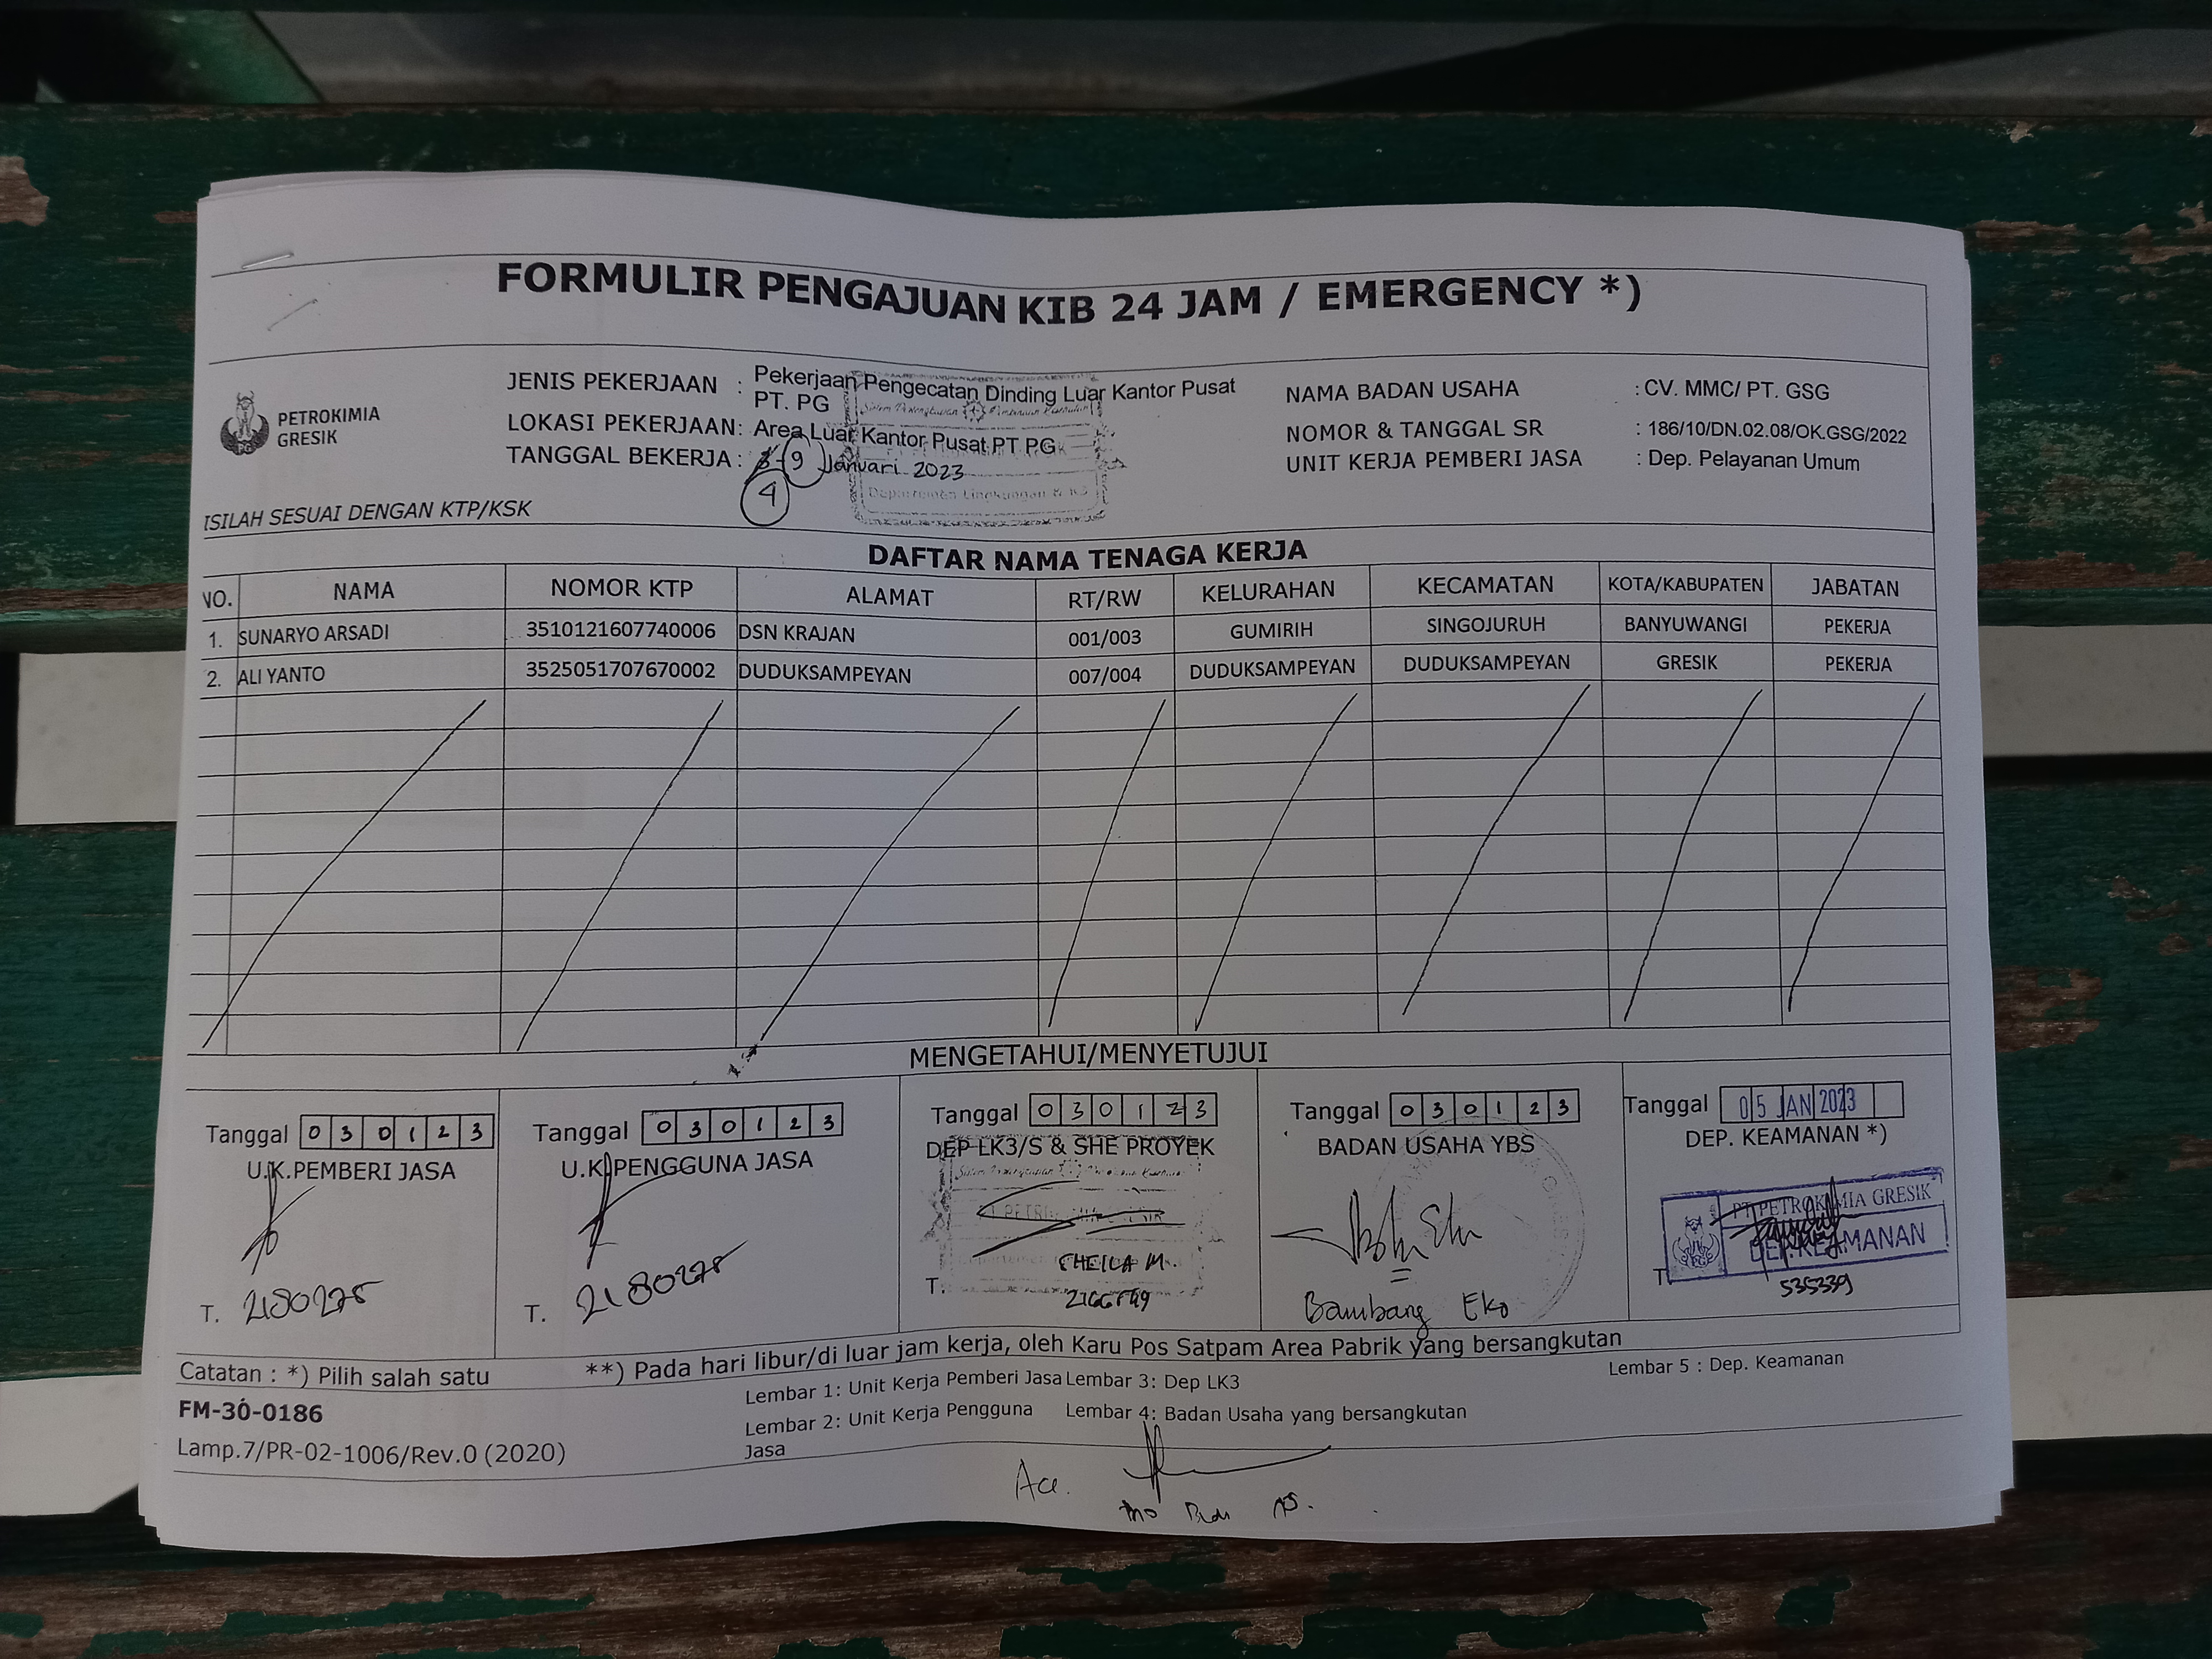 FORMULIR PENGAJUAN KIB 24 JAM / EMERGENCY *)
PETROKIMIA
GRESIK
JENIS PEKERJAAN : Pekerjaan Pengecatan Dinding Luar Kantor Pusat
PT. PG
LOKASI PEKERJAAN: Area Luar Kantor Pusat PT PG
TANGGAL BEKERJA : 9 Januari 2023
4
NAMA BADAN USAHA : CV. MMC/ PT. GSG
NOMOR & TANGGAL SR : 186/10/DN.02.08/OK.GSG/2022
UNIT KERJA PEMBERI JASA : Dep. Pelayanan Umum
ISILAH SESUAI DENGAN KTP/KSK
DAFTAR NAMA TENAGA KERJA
NO. NAMA NOMOR KTP ALAMAT RT/RW KELURAHAN KECAMATAN KOTA/KABUPATEN JABATAN
1. SUNARYO ARSADI 3510121607740006 DSN KRAJAN 001/003 GUMIRIH SINGOJURUH BANYUWANGI PEKERJA
2. ALI YANTO 3525051707670002 DUDUKSAMPEYAN 007/004 DUDUKSAMPEYAN DUDUKSAMPEYAN GRESIK PEKERJA
MENGETAHUI/MENYETUJUI
Tanggal 0 3 0 1 2 3
U.K.PEMBERI JASA
T. 2180275
Tanggal 0 3 0 1 2 3
U.K.PENGGUNA JASA
T. 2180275
Tanggal 0 3 0 1 2 3
DEP LK3/S & SHE PROYEK
T.
Tanggal 0 3 0 1 2 3
BADAN USAHA YBS
Bambang Eko
Tanggal 05 JAN 2023
DEP. KEAMANAN *)
PT PETROKIMIA GRESIK
DEP. KEAMANAN
T.
Catatan : *) Pilih salah satu **) Pada hari libur/di luar jam kerja, oleh Karu Pos Satpam Area Pabrik yang bersangkutan
FM-30-0186
Lamp.7/PR-02-1006/Rev.0 (2020)
Lembar 1: Unit Kerja Pemberi Jasa Lembar 3: Dep LK3 Lembar 5 : Dep. Keamanan
Lembar 2: Unit Kerja Pengguna Lembar 4: Badan Usaha yang bersangkutan
Jasa
Acc.